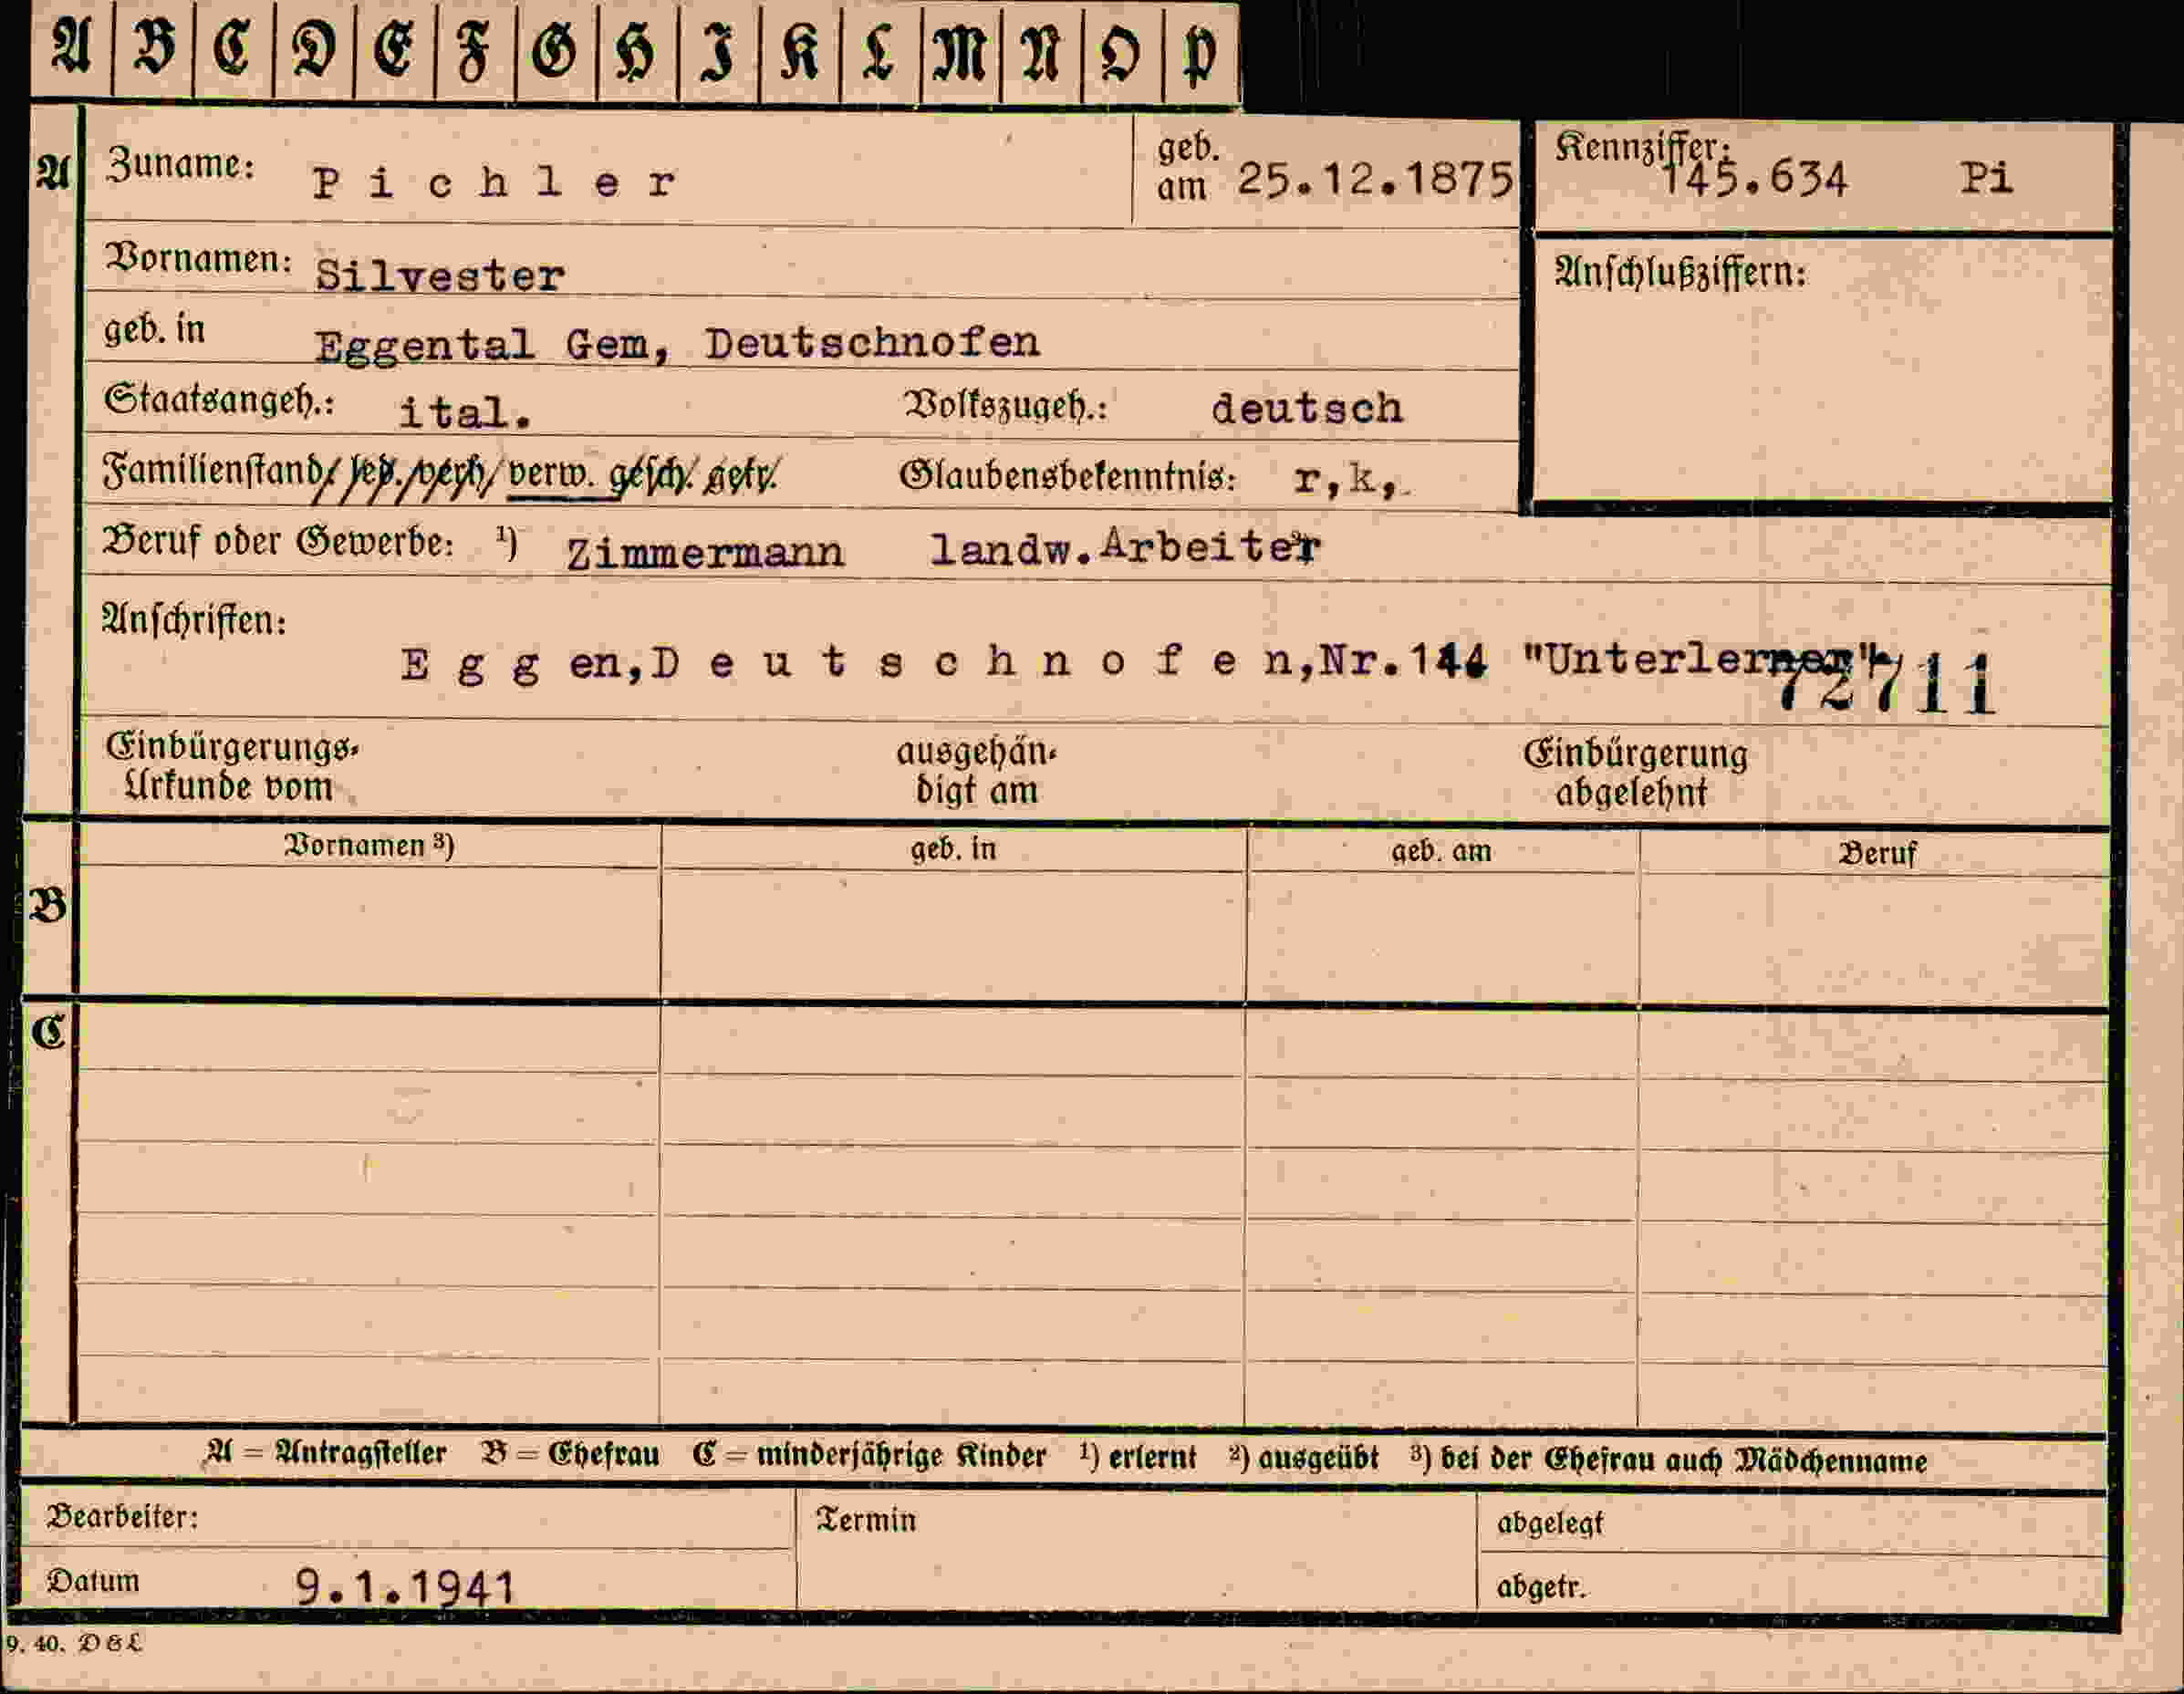 A B C D E F G H I K L M N O P
A Zuname: Pichler geb. am 25.12.1875 Kennziffer: 145.634 Pi
Vornamen: Silvester Anschlußziffern:
geb. in Eggental Gem, Deutschnofen
Staatsangeh.: ital. Volkszugeh.: deutsch
Familienstand: led. verh. verw. gesch. getr. Glaubensbekenntnis: r,k,
Beruf oder Gewerbe: ¹) Zimmermann landw.Arbeiter ²)
Anschriften:
Eggen,Deutschnofen,Nr.144 "Unterlerner"
72711
Einbürgerungs-Urkunde vom ausgehändigt am Einbürgerung abgelehnt
Vornamen ³) geb. in geb. am Beruf
B
C
A = Antragsteller B = Ehefrau C = minderjährige Kinder ¹) erlernt ²) ausgeübt ³) bei der Ehefrau auch Mädchenname
Bearbeiter: Termin abgelegt
Datum 9.1.1941 abgetr.
9. 40. D&L